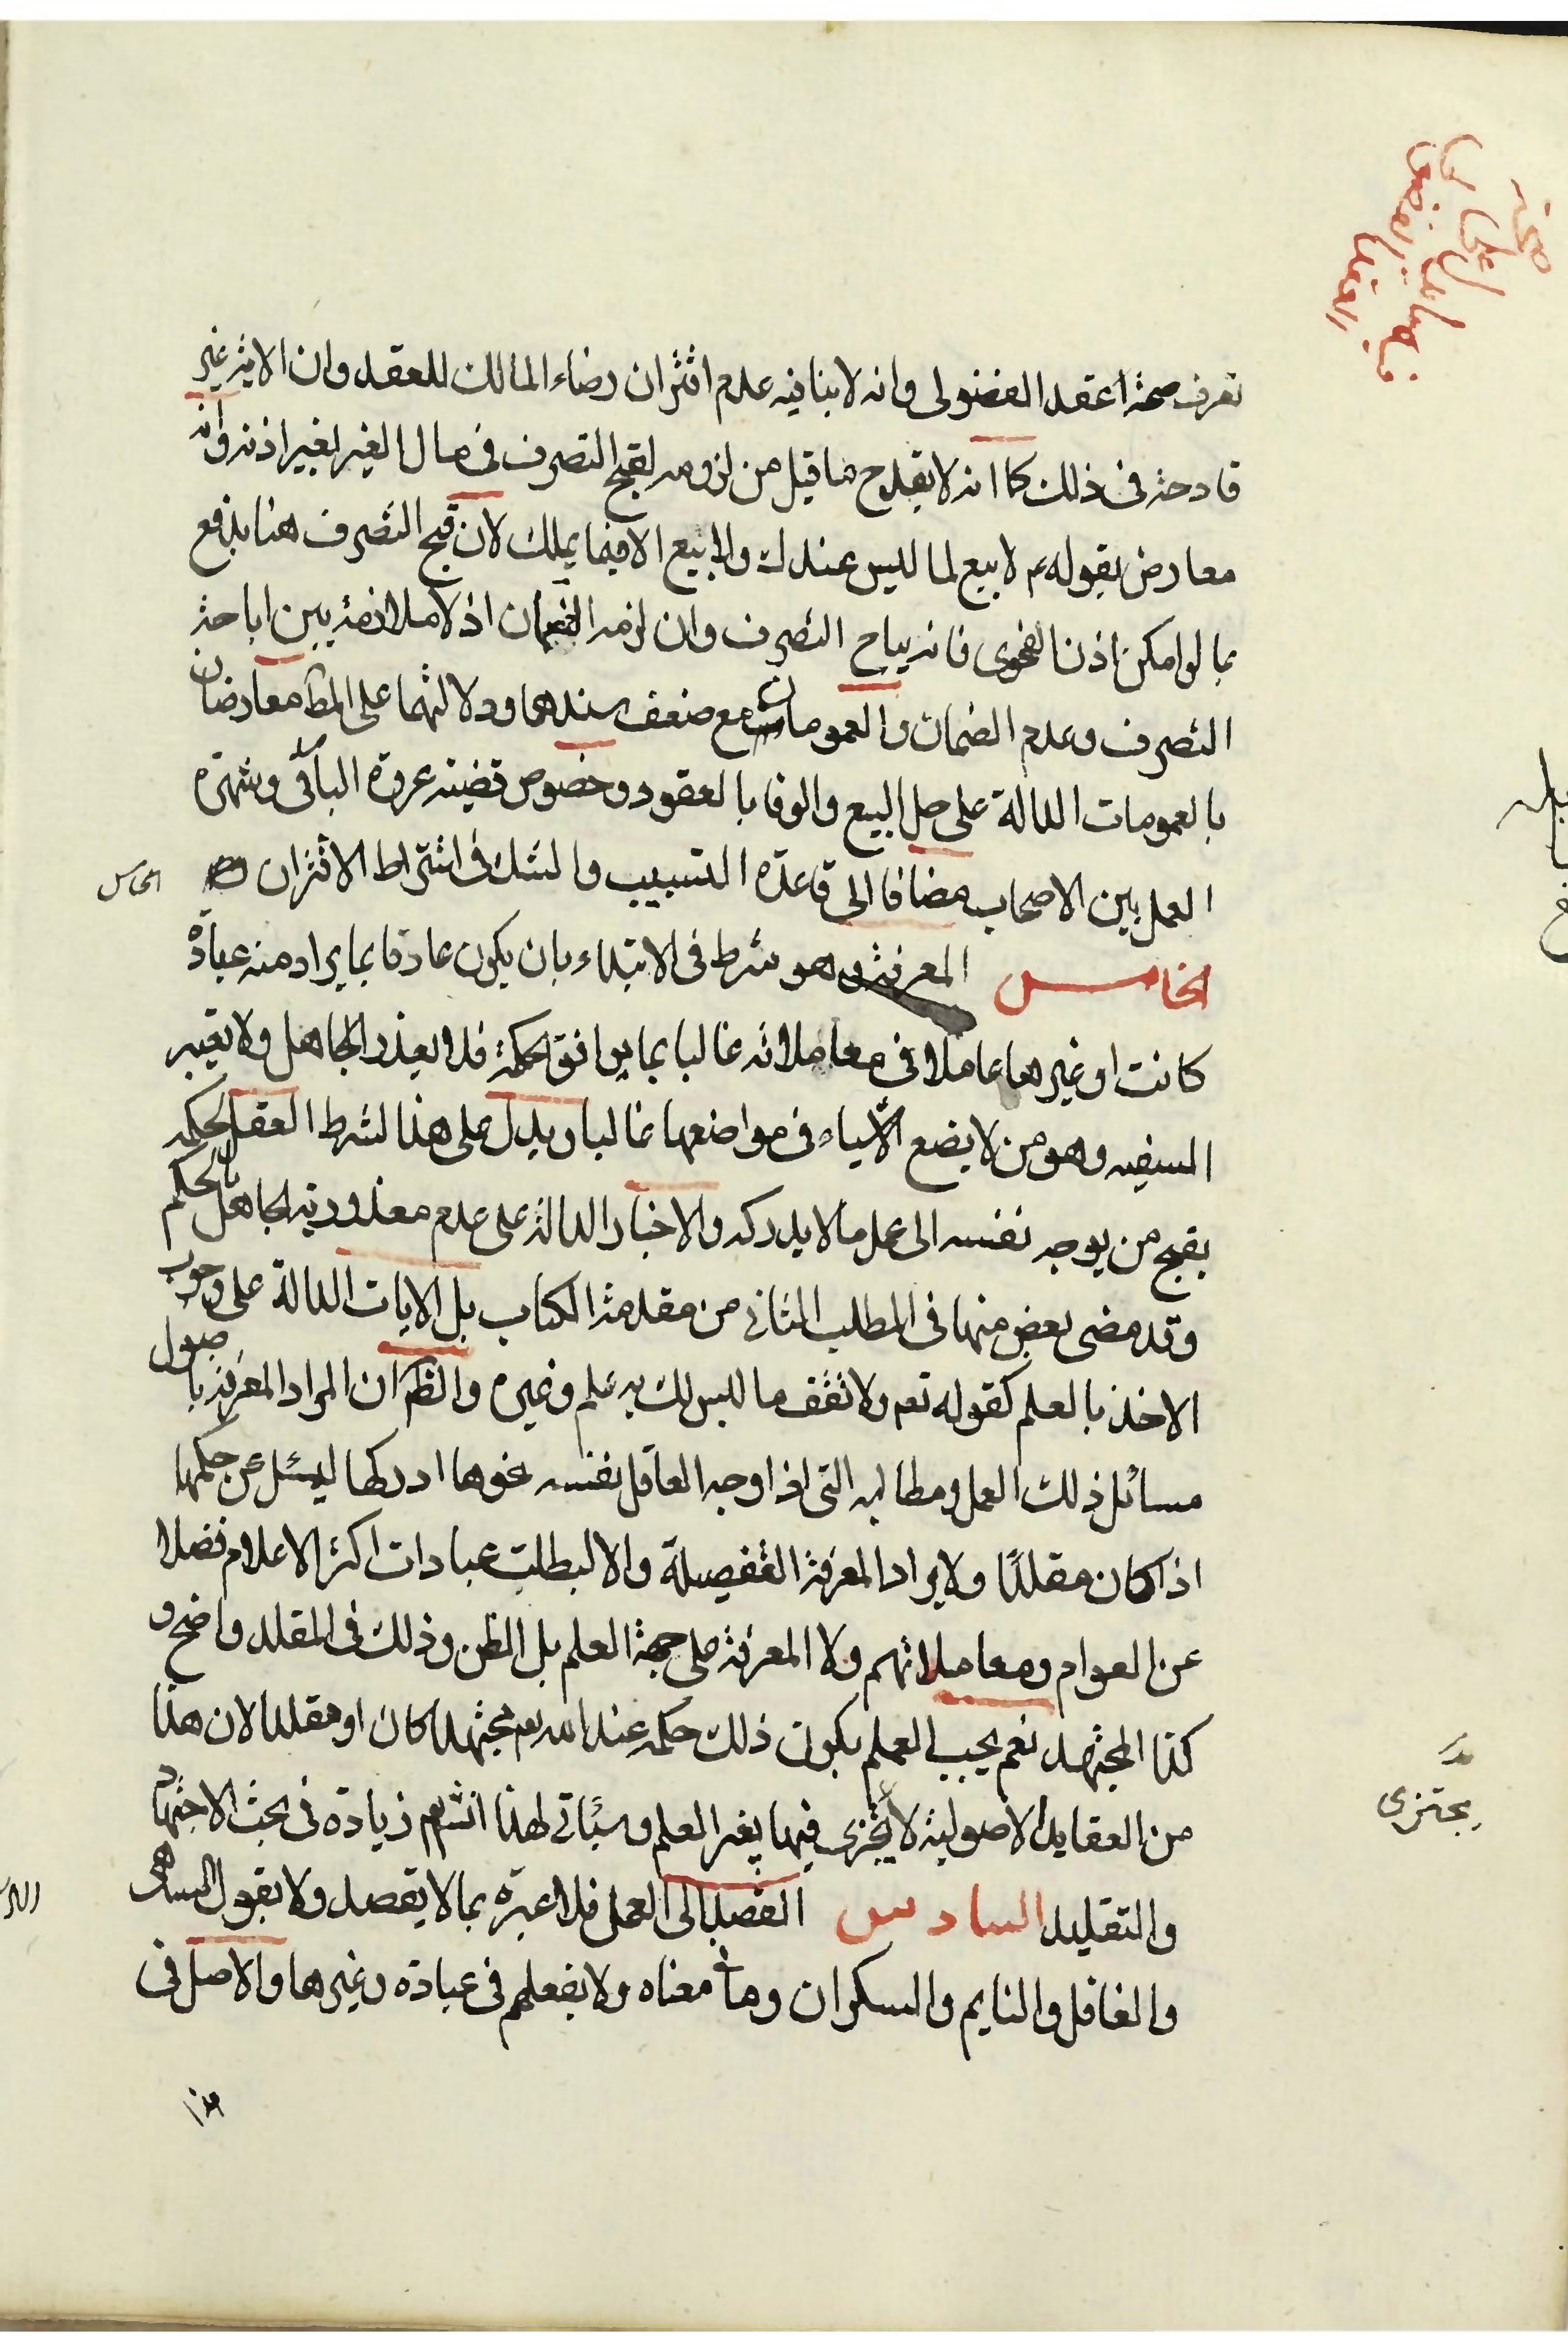 تعرف صحة اعقد الفضولى وانه لا ينافيه عدم اقتران رضاء المالك للعقد وان الاية غير
قادحة فى ذلك كما انه لا يقدح ما قيل من لزومه لقبح التصرف فى مال الغير بغير اذنه وانه
معارض بقوله ع لا بيع لما ليس عندك ولا بيع الا فيما يملك لان قبح التصرف هنا يدفع
بما لو امكن اذن الفحوى فانه يباح التصرف وان لزمه الضمان اذ لا ملازمة بين اباحة
التصرف وعدم الضمان والعمومان مع ضعف سندهما ودلالتهما على المط معارضان
بالعمومات الدالة على حل البيع والوفا بالعقود وخصوص قضية عروة البارقى وشهرة
العمل بين الاصحاب مضافا الى قاعدة التسبيب والشك فى اشتراط الاقتران
الخامس المعرفة وهو شرط فى الابتداء بان يكون عارفا بما يراد منه عبادة
كانت او غيرها عاملا فى معاملاته غالبا بما يوافق الحكمة فلا يعذر الجاهل ولا يعتبر
السفيه وهو من لا يضع الاشياء فى مواضعها غالبا ويدل على هذا الشرط العقل لحكمه
بقبح من يوجه نفسه الى عمل ما لا يدركه والاخبار الدالة على عدم معذورية الجاهل بالحكم
وقد مضى بعض منها فى المطلب الثانى من مقدمة الكتاب بل الايات الدالة على وجوب
الاخذ بالعلم كقوله تعم ولا تقف ما ليس لك به علم وغيره والظم ان المراد المعرفة باصول
مسائل ذلك العمل ومطالبه التى اذا وجه العاقل نفسه نحوها ادركها ليسئل عن حكمها
اذا كان مقلدًا ولا يراد المعرفة التفصيلة والا لبطلت عبادات اكثر الاعلام فضلا
عن العوام ومعاملاتهم ولا المعرفة على جهة العلم بل الظن وذلك فى المقلد واضح و
كذا المجتهد نعم يجب العلم بكون ذلك حكمه عند الله تعم مجتهدا كان او مقلدا لان هذا
من العقايد الاصولية لا يجزى فيها بغير العلم وسيأتى لهذا انشم زيادة فى بحث الاجتهاد
والتقليد السادس القصد الى العمل فلا عبرة بما لا يقصد ولا بقول الساهى
والغافل والنايم والسكران وما معناه ولا بفعلهم فى عبادة وغيرها والاصل فى
هذا
الخامس
يجتزى